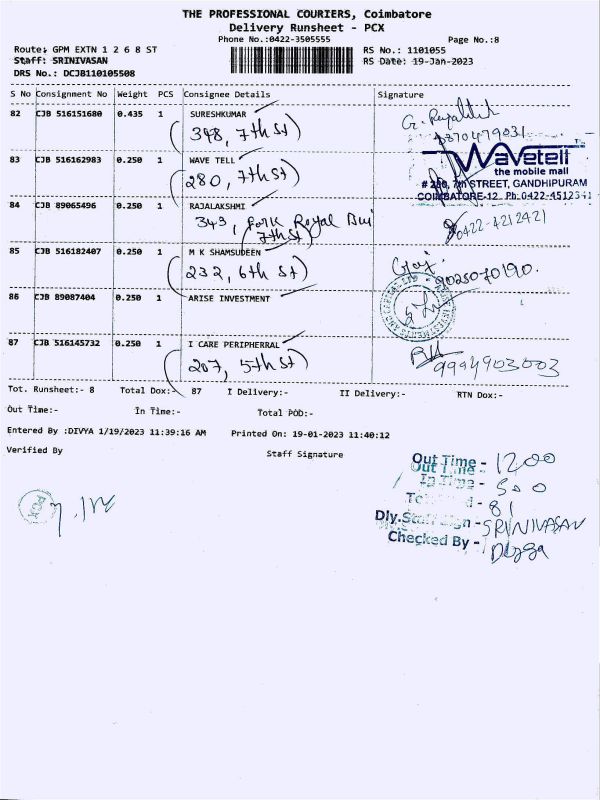 THE PROFESSIONAL COURIERS, Coimbatore
Delivery Runsheet - PCX
Phone No.:0422-3505555
Page No.:8
Route: GPM EXTN 1 2 6 8 ST
RS No.: 1101055
Staff: SRINIVASAN
RS Date: 19-Jan-2023
DRS No.: DCJB110105508
S No Consignment No Weight PCS Consignee Details Signature
82 CJB 516151680 0.435 1 SURESHKUMAR
(398, 7th St)
83 CJB 516162983 0.250 1 WAVE TELL
(280, 7th St)
Wavetell
the mobile mall
# 280, 7th STREET, GANDHIPURAM
COIMBATORE-12. Ph: 0422-4512341
84 CJB 89065496 0.250 1 RAJALAKSHMI
343, Park Royal Bui
(7th St)
0422-4212421
85 CJB 516182407 0.250 1 M K SHAMSUDEEN
(232, 6th St)
9025070190.
86 CJB 89087404 0.250 1 ARISE INVESTMENT
87 CJB 516145732 0.250 1 I CARE PERIPHERRAL
(207, 5th St)
9994903003
Tot. Runsheet:- 8 Total Dox:- 87 I Delivery:- II Delivery:- RTN Dox:-
Out Time:- In Time:- Total POD:-
Entered By :DIVYA 1/19/2023 11:39:16 AM Printed On: 19-01-2023 11:40:12
Verified By Staff Signature
Out Time - 1200
In Time - 500
81
Dly.Staff Sign - SRINIVASAN
Checked By -
PCX